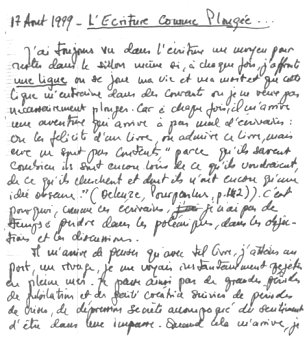 17 Août 1999 - L'Ecriture Comme Plongée...
J'ai toujours vu dans l'écriture un moyen pour
rester dans le sillon même si, à chaque fois, j'affronte
une ligne où se joue ma vie et ma mort et que cette
ligne m'entraîne dans des courants où je ne veux pas
nécessairement plonger. Car à chaque fois, il m'arrive
une aventure qui arrive à pas mal d'écrivains :
On les félicite d'un livre, on admire ce livre, mais
eux ne sont pas contents " parce qu'ils savent
combien ils sont encore loin de ce qu'ils voudraient,
de ce qu'ils cherchent et dont ils n'ont encore qu'une
idée obscure." (Deleuze, Pourparlers, p. ) C'est
pourquoi, comme ces écrivains, je n'ai pas de
temps à perdre dans les polémiques, dans les objec-
tions et les discussions.
Il m'arrive de penser qu'avec tel livre, j'atteins au
port, un rivage, je me voyais instantanément rejetée
en pleine mer. Je passe ainsi par de grandes périodes
de jubilation et de créatrice suivies de périodes
de crise, de dépression secrète accompagnée du sentiment
d'être dans une impasse. Quand cela m'arrive, je